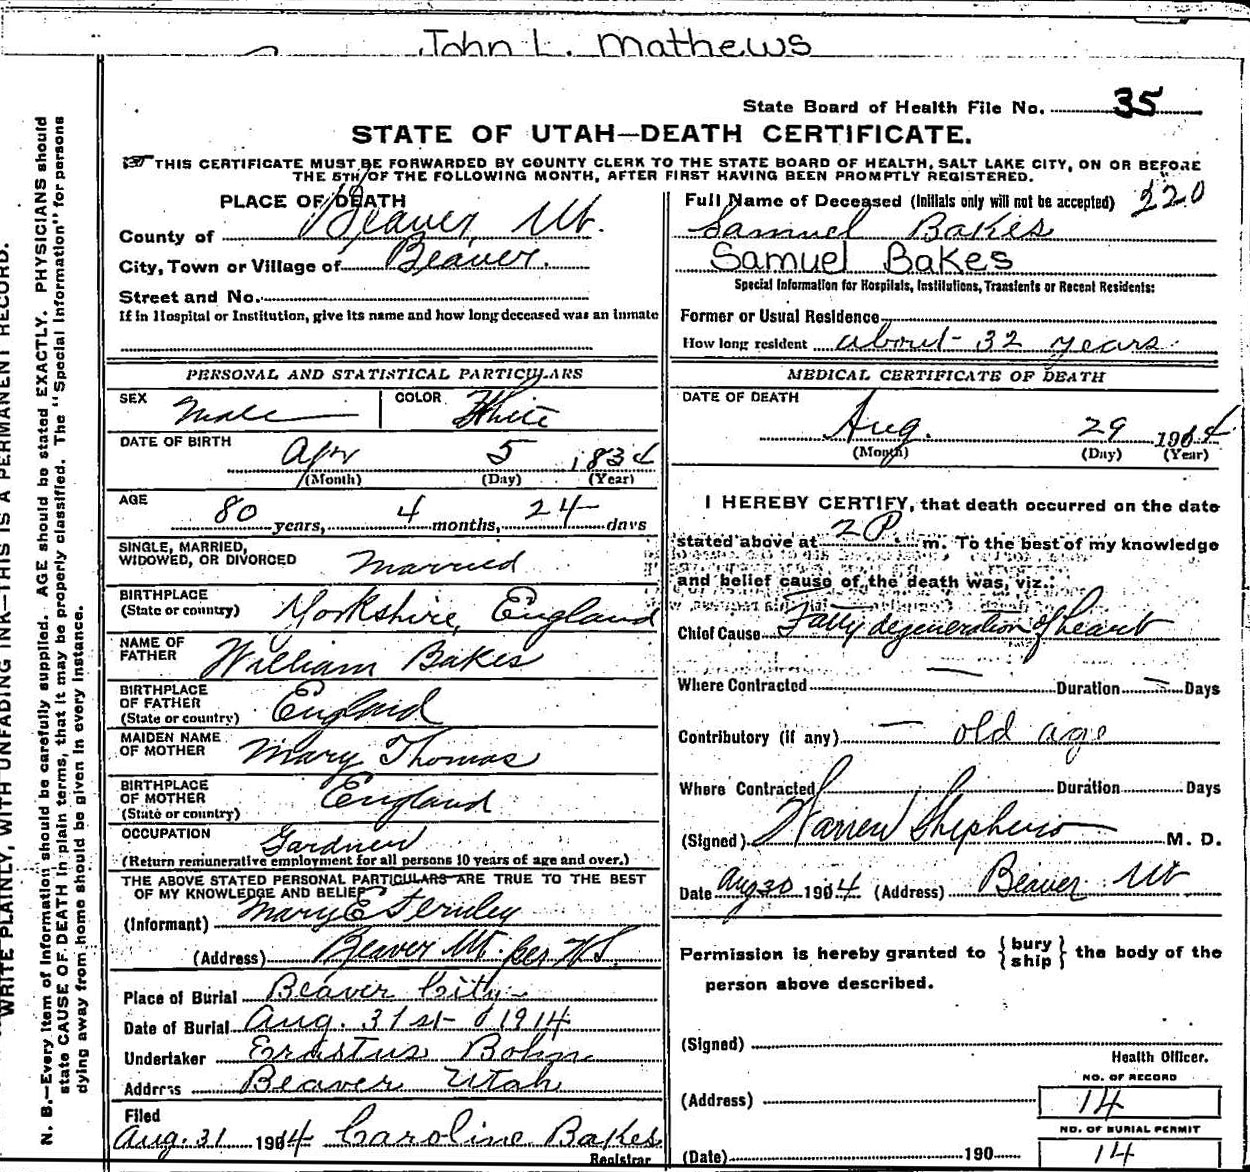 John L. Mathews
State Board of Health File No. 35
STATE OF UTAH—DEATH CERTIFICATE.
THIS CERTIFICATE MUST BE FORWARDED BY COUNTY CLERK TO THE STATE BOARD OF HEALTH, SALT LAKE CITY, ON OR BEFORE
THE 5TH OF THE FOLLOWING MONTH, AFTER FIRST HAVING BEEN PROMPTLY REGISTERED.
WRITE PLAINLY, WITH UNFADING INK—THIS IS A PERMANENT RECORD.
N. B.—Every item of information should be carefully supplied. AGE should be stated EXACTLY. PHYSICIANS should
state CAUSE OF DEATH in plain terms, that it may be properly classified. The "Special Information" for persons
dying away from home should be given in every instance.
PLACE OF DEATH
County of Beaver, Ut.
City, Town or Village of Beaver.
Street and No.
If in Hospital or Institution, give its name and how long deceased was an inmate
PERSONAL AND STATISTICAL PARTICULARS
SEX Male COLOR White
DATE OF BIRTH
Apr 5 1834
(Month) (Day) (Year)
AGE
80 years, 4 months, 24 days
SINGLE, MARRIED,
WIDOWED, OR DIVORCED Married
BIRTHPLACE
(State or country) Yorkshire, England
NAME OF
FATHER William Bakes
BIRTHPLACE
OF FATHER
(State or country) England
MAIDEN NAME
OF MOTHER Mary Thomas
BIRTHPLACE
OF MOTHER
(State or country) England
OCCUPATION Gardner
(Return remunerative employment for all persons 10 years of age and over.)
THE ABOVE STATED PERSONAL PARTICULARS ARE TRUE TO THE BEST
OF MY KNOWLEDGE AND BELIEF
(Informant) Mary E
(Address) Beaver Ut. per W.S.
Place of Burial Beaver City
Date of Burial Aug. 31st 1914
Undertaker Erastus Bohn
Address Beaver Utah
Filed
Aug. 31 1914 Caroline Bakes
Registrar
Full Name of Deceased (Initials only will not be accepted) 220
Samuel Bakes
Samuel Bakes
Special Information for Hospitals, Institutions, Transients or Recent Residents:
Former or Usual Residence
How long resident about 32 years
MEDICAL CERTIFICATE OF DEATH
DATE OF DEATH
Aug. 29 1914
(Month) (Day) (Year)
I HEREBY CERTIFY, that death occurred on the date
stated above at 2 P. m. To the best of my knowledge
and belief cause of the death was, viz.:
Chief Cause Fatty degeneration of heart
Where Contracted — Duration — Days
Contributory (if any) — old age
Where Contracted Duration Days
(Signed) Warren Shepherd M. D.
Date Aug 30 1904 (Address) Beaver Ut
Permission is hereby granted to { bury
ship } the body of the
person above described.
(Signed)
Health Officer.
NO. OF RECORD
(Address) 14
NO. OF BURIAL PERMIT
(Date) 190 14